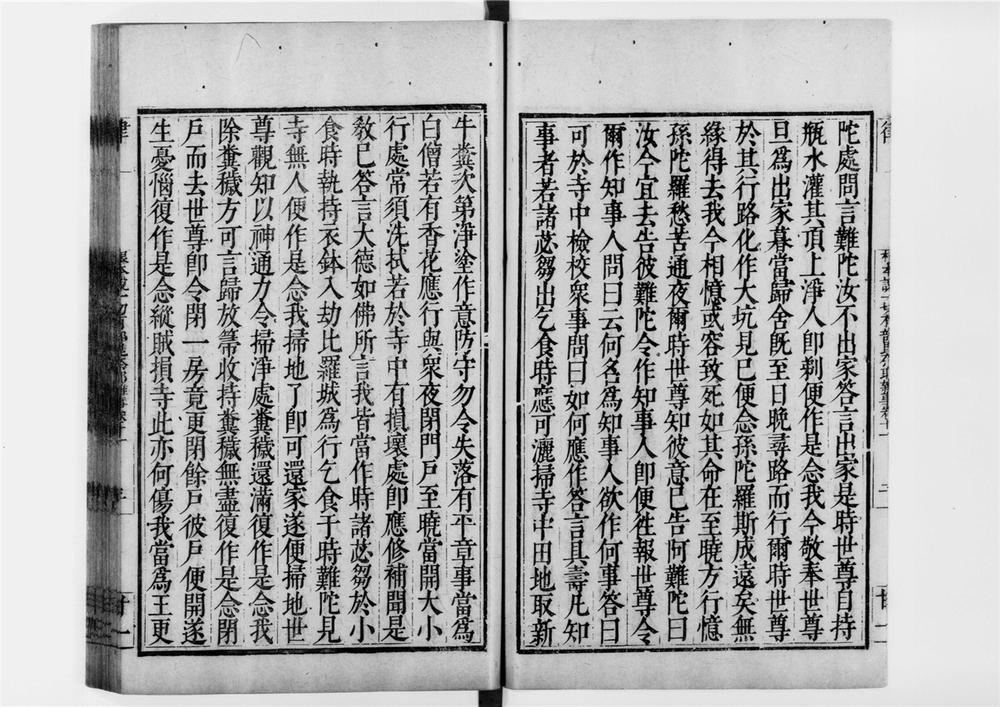 陀處問言難陀汝不出家答言出家是時世尊自持
瓶水灌其頂上淨人即剃便作是念我今敬奉世尊
旦爲出家暮當歸舍旣至日晚尋路而行爾時世尊
於其行路化作大坑見已便念孫陀羅斯成遠矣無
緣得去我今相憶或容致死如其命在至曉方行憶
孫陀羅愁苦通夜爾時世尊知彼意已告阿難陀曰
汝今宜去告彼難陀令作知事人即便往報世尊令
爾作知事人問曰云何名爲知事人欲作何事答曰
可於寺中檢校衆事問曰如何應作答言具壽凡知
事者若諸苾芻出乞食時應可灑掃寺中田地取新
牛糞次第淨塗作意防守勿令失落有平章事當爲
白僧若有香花應行與衆夜閉門戸至曉當開大小
行處常須洗拭若於寺中有損壞處即應修補聞是
教已答言大德如佛所言我皆當作時諸苾芻於小
食時執持衣鉢入劫比羅城爲行乞食于時難陀見
寺無人便作是念我掃地了即可還家遂便掃地世
尊觀知以神通力令掃淨處糞穢還滿復作是念我
除糞穢方可言歸放箒收持糞穢無盡復作是念閉
戸而去世尊即令閉一房竟更閉餘戸彼戸便開遂
生憂惱復作是念縱賊損寺此亦何傷我當爲王更
律